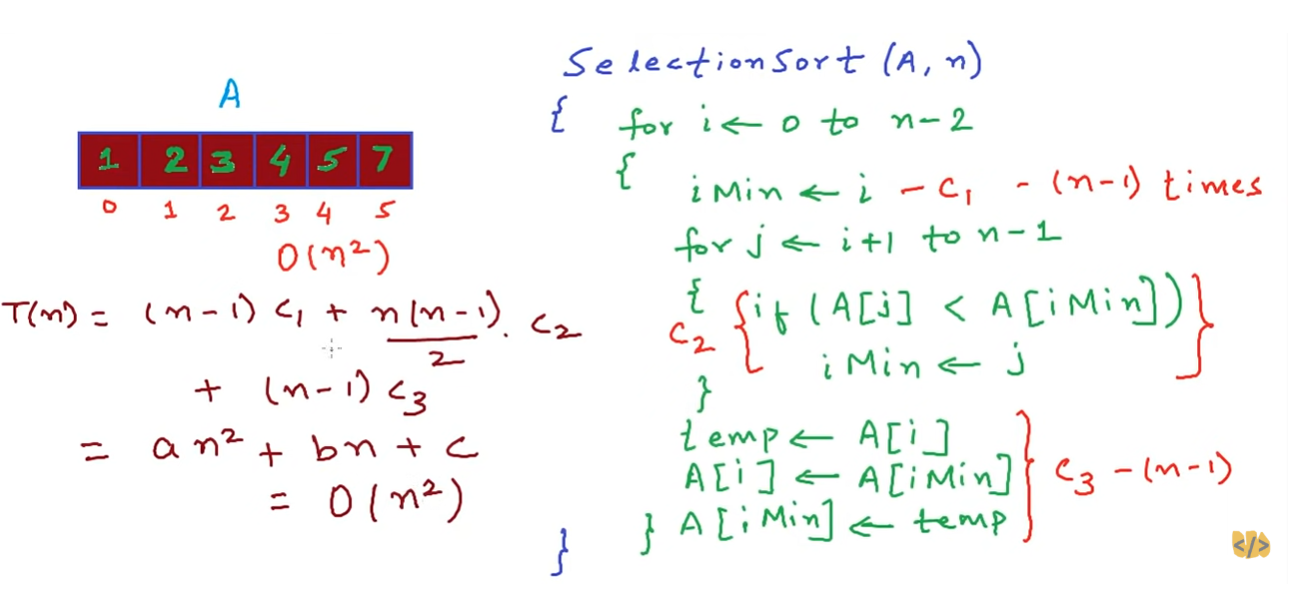 A
1 2 3 4 5 7
0 1 2 3 4 5
O(n²)
T(n) = (n-1) c₁ + n(n-1)/2 . c₂
+ (n-1) c₃
= an² + bn + c
= O(n²)
SelectionSort (A, n)
{ for i ← 0 to n-2
{
iMin ← i - c₁ - (n-1) times
for j ← i+1 to n-1
{
c₂ {if (A[j] < A[iMin])}
iMin ← j
}
temp ← A[i]
A[i] ← A[iMin] } c₃ - (n-1)
} A[iMin] ← temp
}
</>